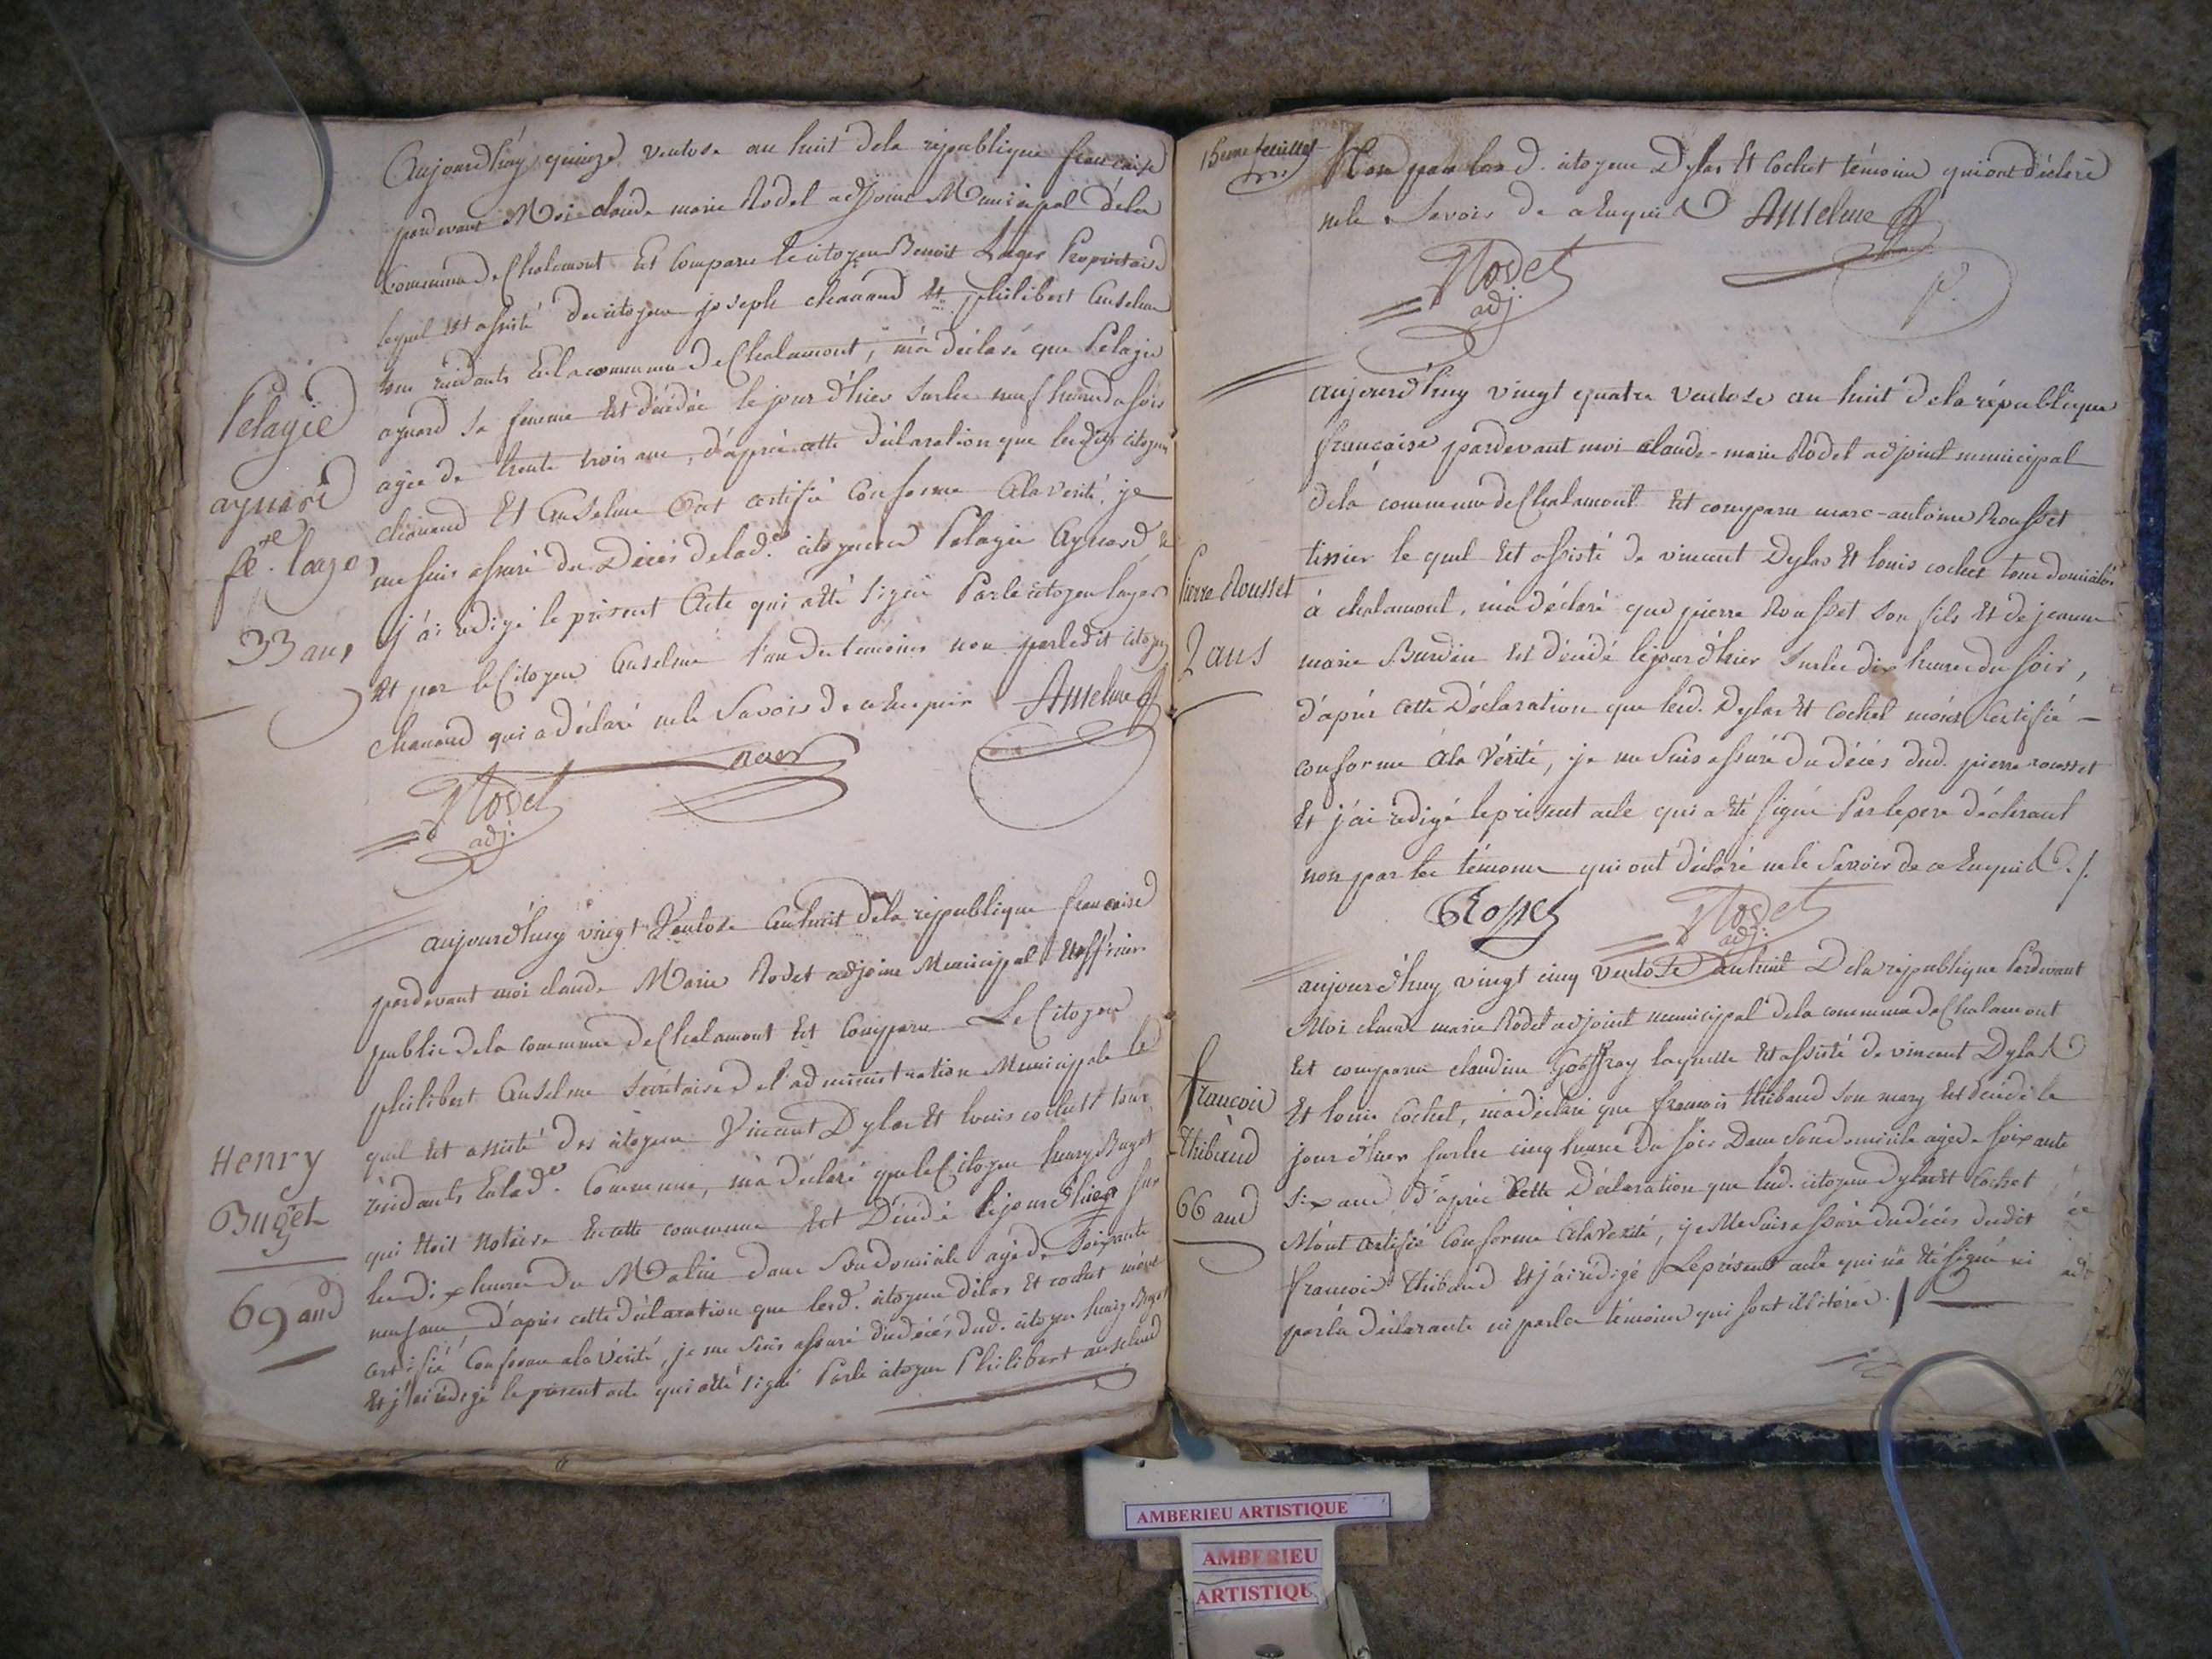 Aujourd'huy quinze ventose an huit de la république francaise
pardevant Moi claude marie Rodet adjoint Municipal de la
Commune de Chalamont Est Comparu le citoyen Benoit Lager Propriétaire
lequel Est assisté des citoyens joseph chanand Et philibert Anselme
tous résidants En la commune de Chalamont, m'a déclaré que Pelagie
aynard sa femme Est décédée le jour d'hier sur les neuf heures du soir
agée de trente trois ans, d'après cette déclaration que lesdits citoyens
chanand Et Anselme Ont certifié Conforme A la vérité, je
me suis assuré du Décès de lad.e citoyenne Pelagie Aynard &
j'ai redigé le présent Acte qui a été signé Par le citoyen lager
Et par le Citoyen Anselme l'un des temoins non par ledit citoyen
Chanand qui a déclaré ne le Savoir de ce Enquis
Anselme
Rodet
adj.
Pelagie
aynard
fe. lager
33 ans
aujourd'huy vingt Ventose an huit de la république francaise
pardevant moi claude Marie Rodet adjoint Municipal Et officier
public de la commune de Chalamont Est Comparu Le Citoyen
philibert Anselme Secrétaire de l'administration Municipale le
quel Est assisté des citoyens Vincent Dylas Et louis cochet tous
résidants En lad.e Commune, m'a déclaré que le Citoyen henry Buget
qui Etoit Notaire En cette commune Est Décédé le jour d'hier sur
les dix heures du Matin dans Son domicile agé de Soixante
neuf ans d'après cette déclaration que lesd. citoyens dilas Et cochet m'ont
certifié Conforme a la Vérité, je me suis assuré du décès dud. citoyen henry Buget
Et j'ai rédigé le présent acte qui a été signé Par le citoyen Philibert anselme
Henry
Buget
69 ans
15eme feuillet
Non par les d. citoyens Dylas Et Cochet témoins qui ont déclaré
ne le Savoir de ce Enquis
Anselme
Rodet
adj.
aujourd'huy vingt quatre Ventose an huit de la république
française pardevant moi claude-marie Rodet adjoint municipal
de la commune de Chalamont Est comparu marc-antoine Rousset
tissier le quel Est assisté de vincent Dylas Et louis cochet tous domiciliés
à chalamont, m'a déclaré que pierre Rousset son fils Et de jeanne
marie Burdin Est décédé le jour d'hier Sur les dix heures du soir,
d'après cette Déclaration que lesd. Dylas Et Cochet m'ont Certifié -
conforme A la Vérité, je me suis assuré du décès dud. pierre rousset
Et j'ai redigé le présent acte qui a été signé Par le pere déclarant
non par les témoins qui ont déclaré ne le Savoir de ce Enquis ./.
Rodet
adj.
Pierre Rousset
2 ans
aujourd'huy vingt cinq ventose an huit De la république Pardevant
Moi claude marie Rodet adjoint municipal de la commune de Chalamont
Est comparue claudine Goiffray laquelle Est assisté de vincent Dylas
Et louis Cochet, m'a déclaré que francois thibaud Son mary Est décédé le
jour d'hier sur les cinq heures Du soir Dans Son domicile agé de soixante
six ans d'après Cette Déclaration que lesd. citoyens Dylas Et Cochet
M'ont certifié Conforme A la Verité, je Me suis assuré du décès dudit
francois thibaud Et j'ai rédigé Le présent acte qui n'a Eté signé ni
par la déclarante ni par les témoins qui sont illitérés.
francois
thibaud
66 ans
AMBERIEU ARTISTIQUE
AMBERIEU
ARTISTIQU